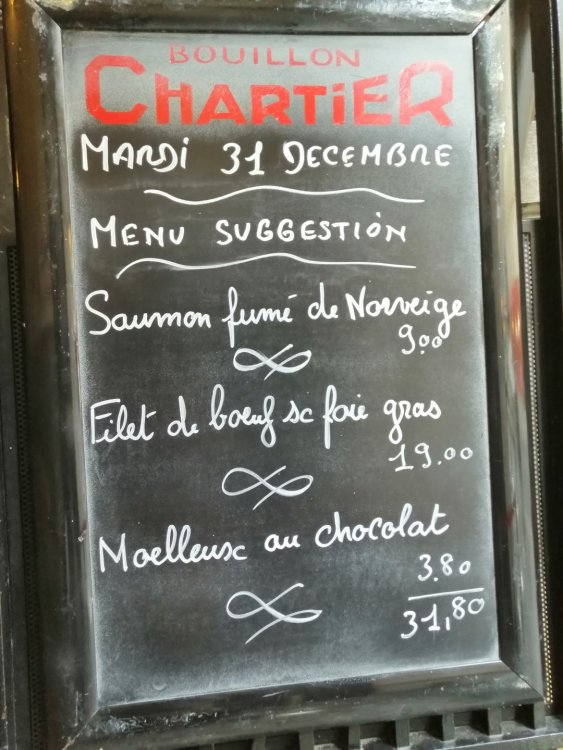 BOUILLON
CHARTiER
MARDI 31 DECEMBRE
MENU SUGGESTION
Saumon fumé de Norveige
9.00
Filet de bœuf sc foie gras
19.00
Moelleux au chocolat
3.80
31,80